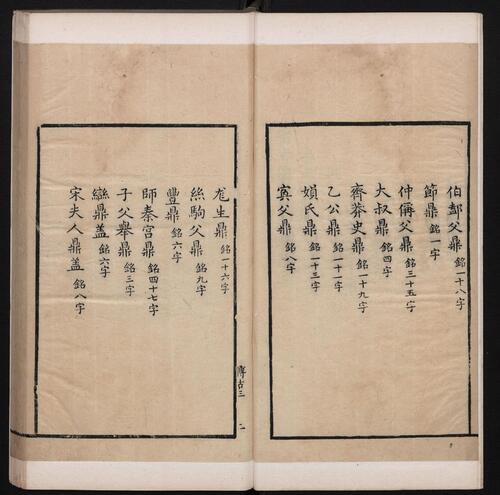 伯郝父鼎 銘一十八字
節鼎 銘一字
仲偁父鼎 銘三十五字
大叔鼎 銘四字
齊莽史鼎 銘一十九字
乙公鼎 銘一十一字
娟氏鼎 銘一十三字
寅父鼎 銘八字
博古三 二
尨生鼎 銘一十六字
絲駒父鼎 銘九字
豐鼎 銘六字
師秦宮鼎 銘四十七字
子父舉鼎 銘三字
䜌鼎蓋 銘六字
宋夫人鼎蓋 銘八字